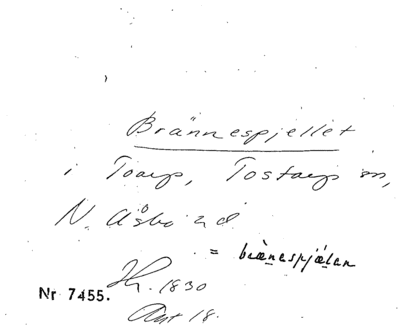 Brännespjellet
i Toarp, Tostarp sn,
N. Åsbo hd
= brä̀nespjä̀len
Nr 7455.
1830
Akt 18.